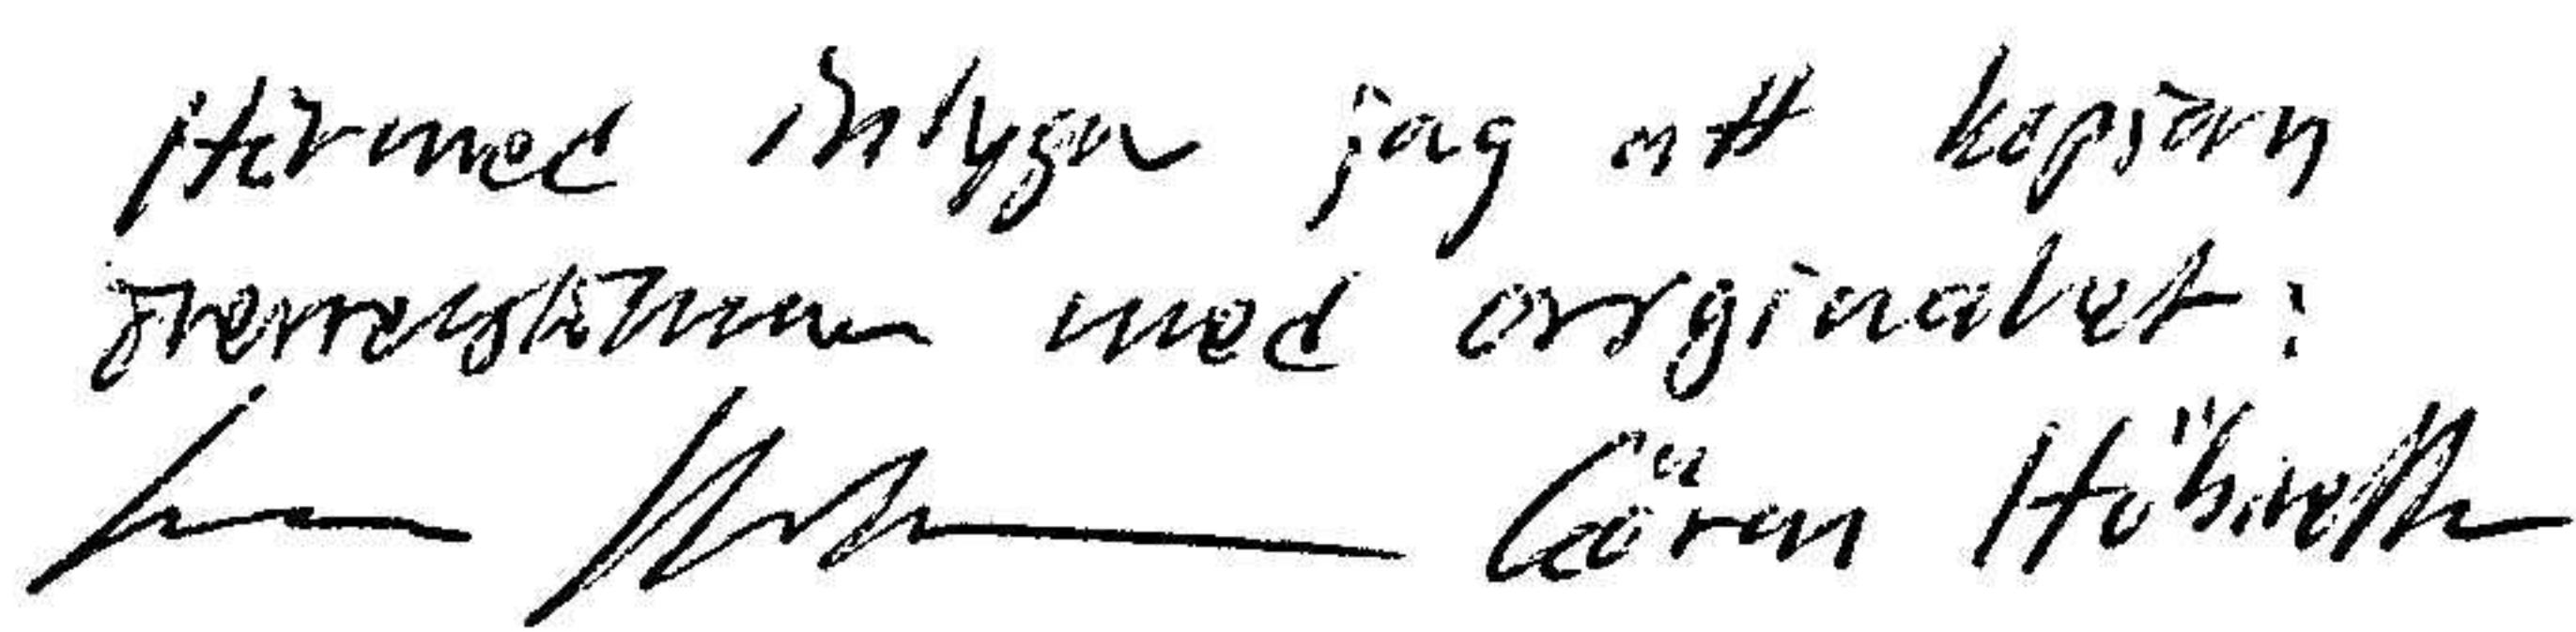 Härmed intygar jag att kopian
överrensstämmer med orginalet:
Göran